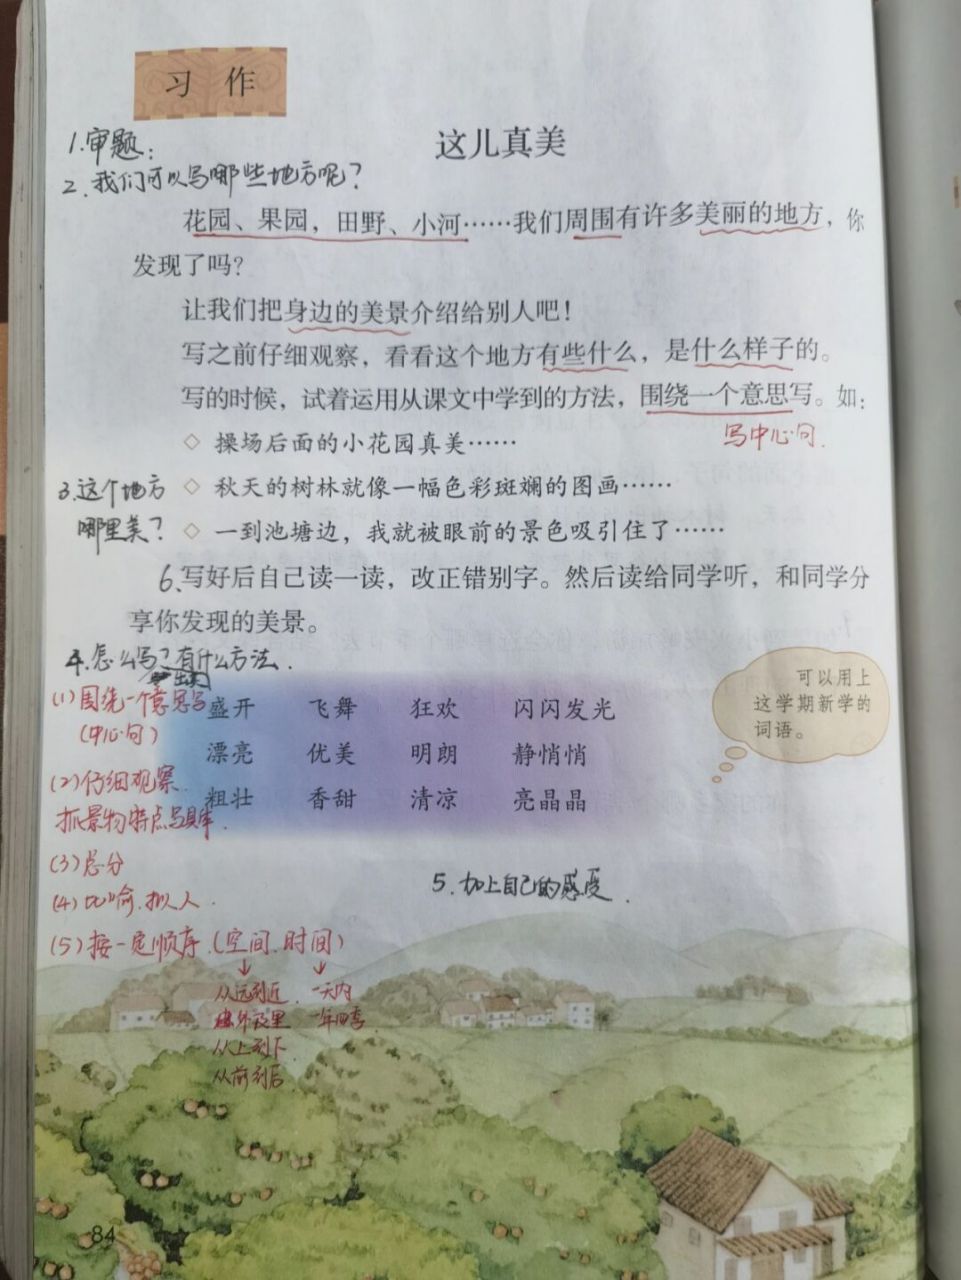 习 作
1.审题：
这儿真美
2、我们可以写哪些地方呢？
花园、果园，田野、小河……我们周围有许多美丽的地方，你
发现了吗？
让我们把身边的美景介绍给别人吧！
写之前仔细观察，看看这个地方有些什么，是什么样子的。
写的时候，试着运用从课文中学到的方法，围绕一个意思写。如：
写中心句.
◇ 操场后面的小花园真美……
3.这个地方
哪里美？
◇ 秋天的树林就像一幅色彩斑斓的图画……
◇ 一到池塘边，我就被眼前的景色吸引住了……
6、写好后自己读一读，改正错别字。然后读给同学听，和同学分
享你发现的美景。
4.怎么写？有什么方法.
可以用上
这学期新学的
词语。
(1)围绕一个意思写
(中心句)
盛开 飞舞 狂欢 闪闪发光
漂亮 优美 明朗 静悄悄
(2)仔细观察.
粗壮 香甜 清凉 亮晶晶
抓景物特点写具体.
(3)总分
5.加上自己的感受.
(4)比喻.拟人.
(5)按一定顺序.(空间.时间)
从远到近. 一天内
外及里 一年四季.
从上到下
从前到后
84